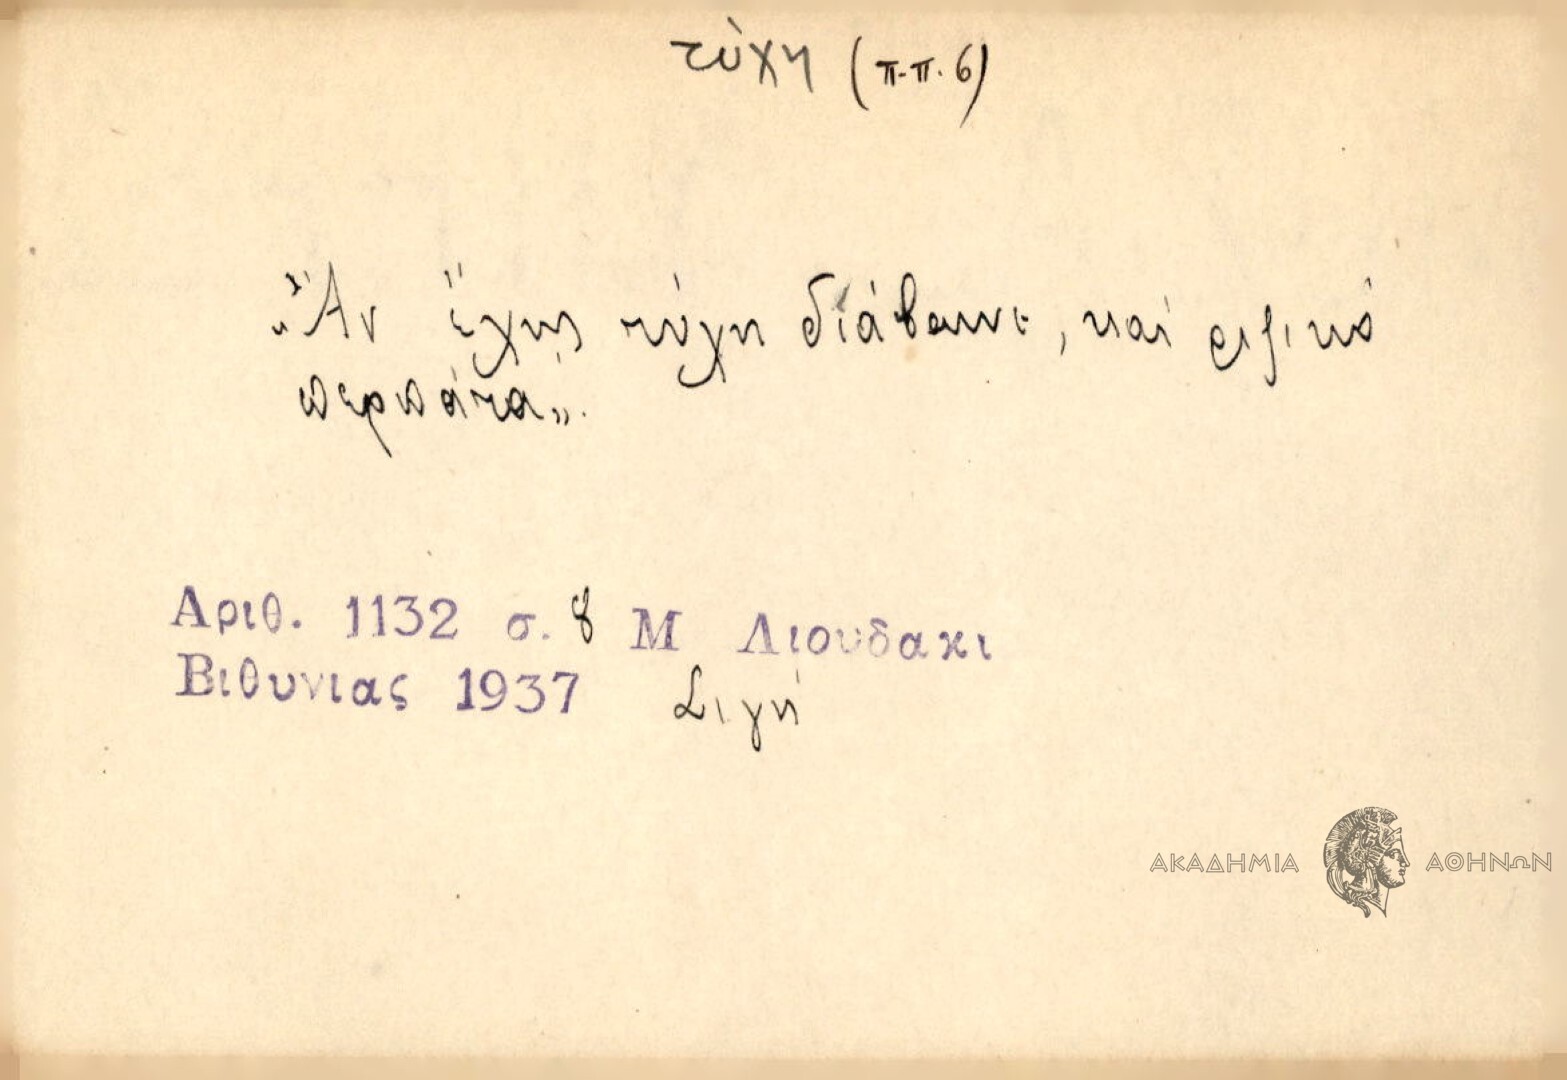 τύχη (π-π. 6)
"Ἂν ἔχης τύχη διάβαινε, καί ριζικό
περπάτα".
Αριθ. 1132 σ. 8 Μ Λιουδακι
Βιθυνιας 1937 Σιγή
ΑΚΑΔΗΜΙΑ ΑΘΗΝΩΝ